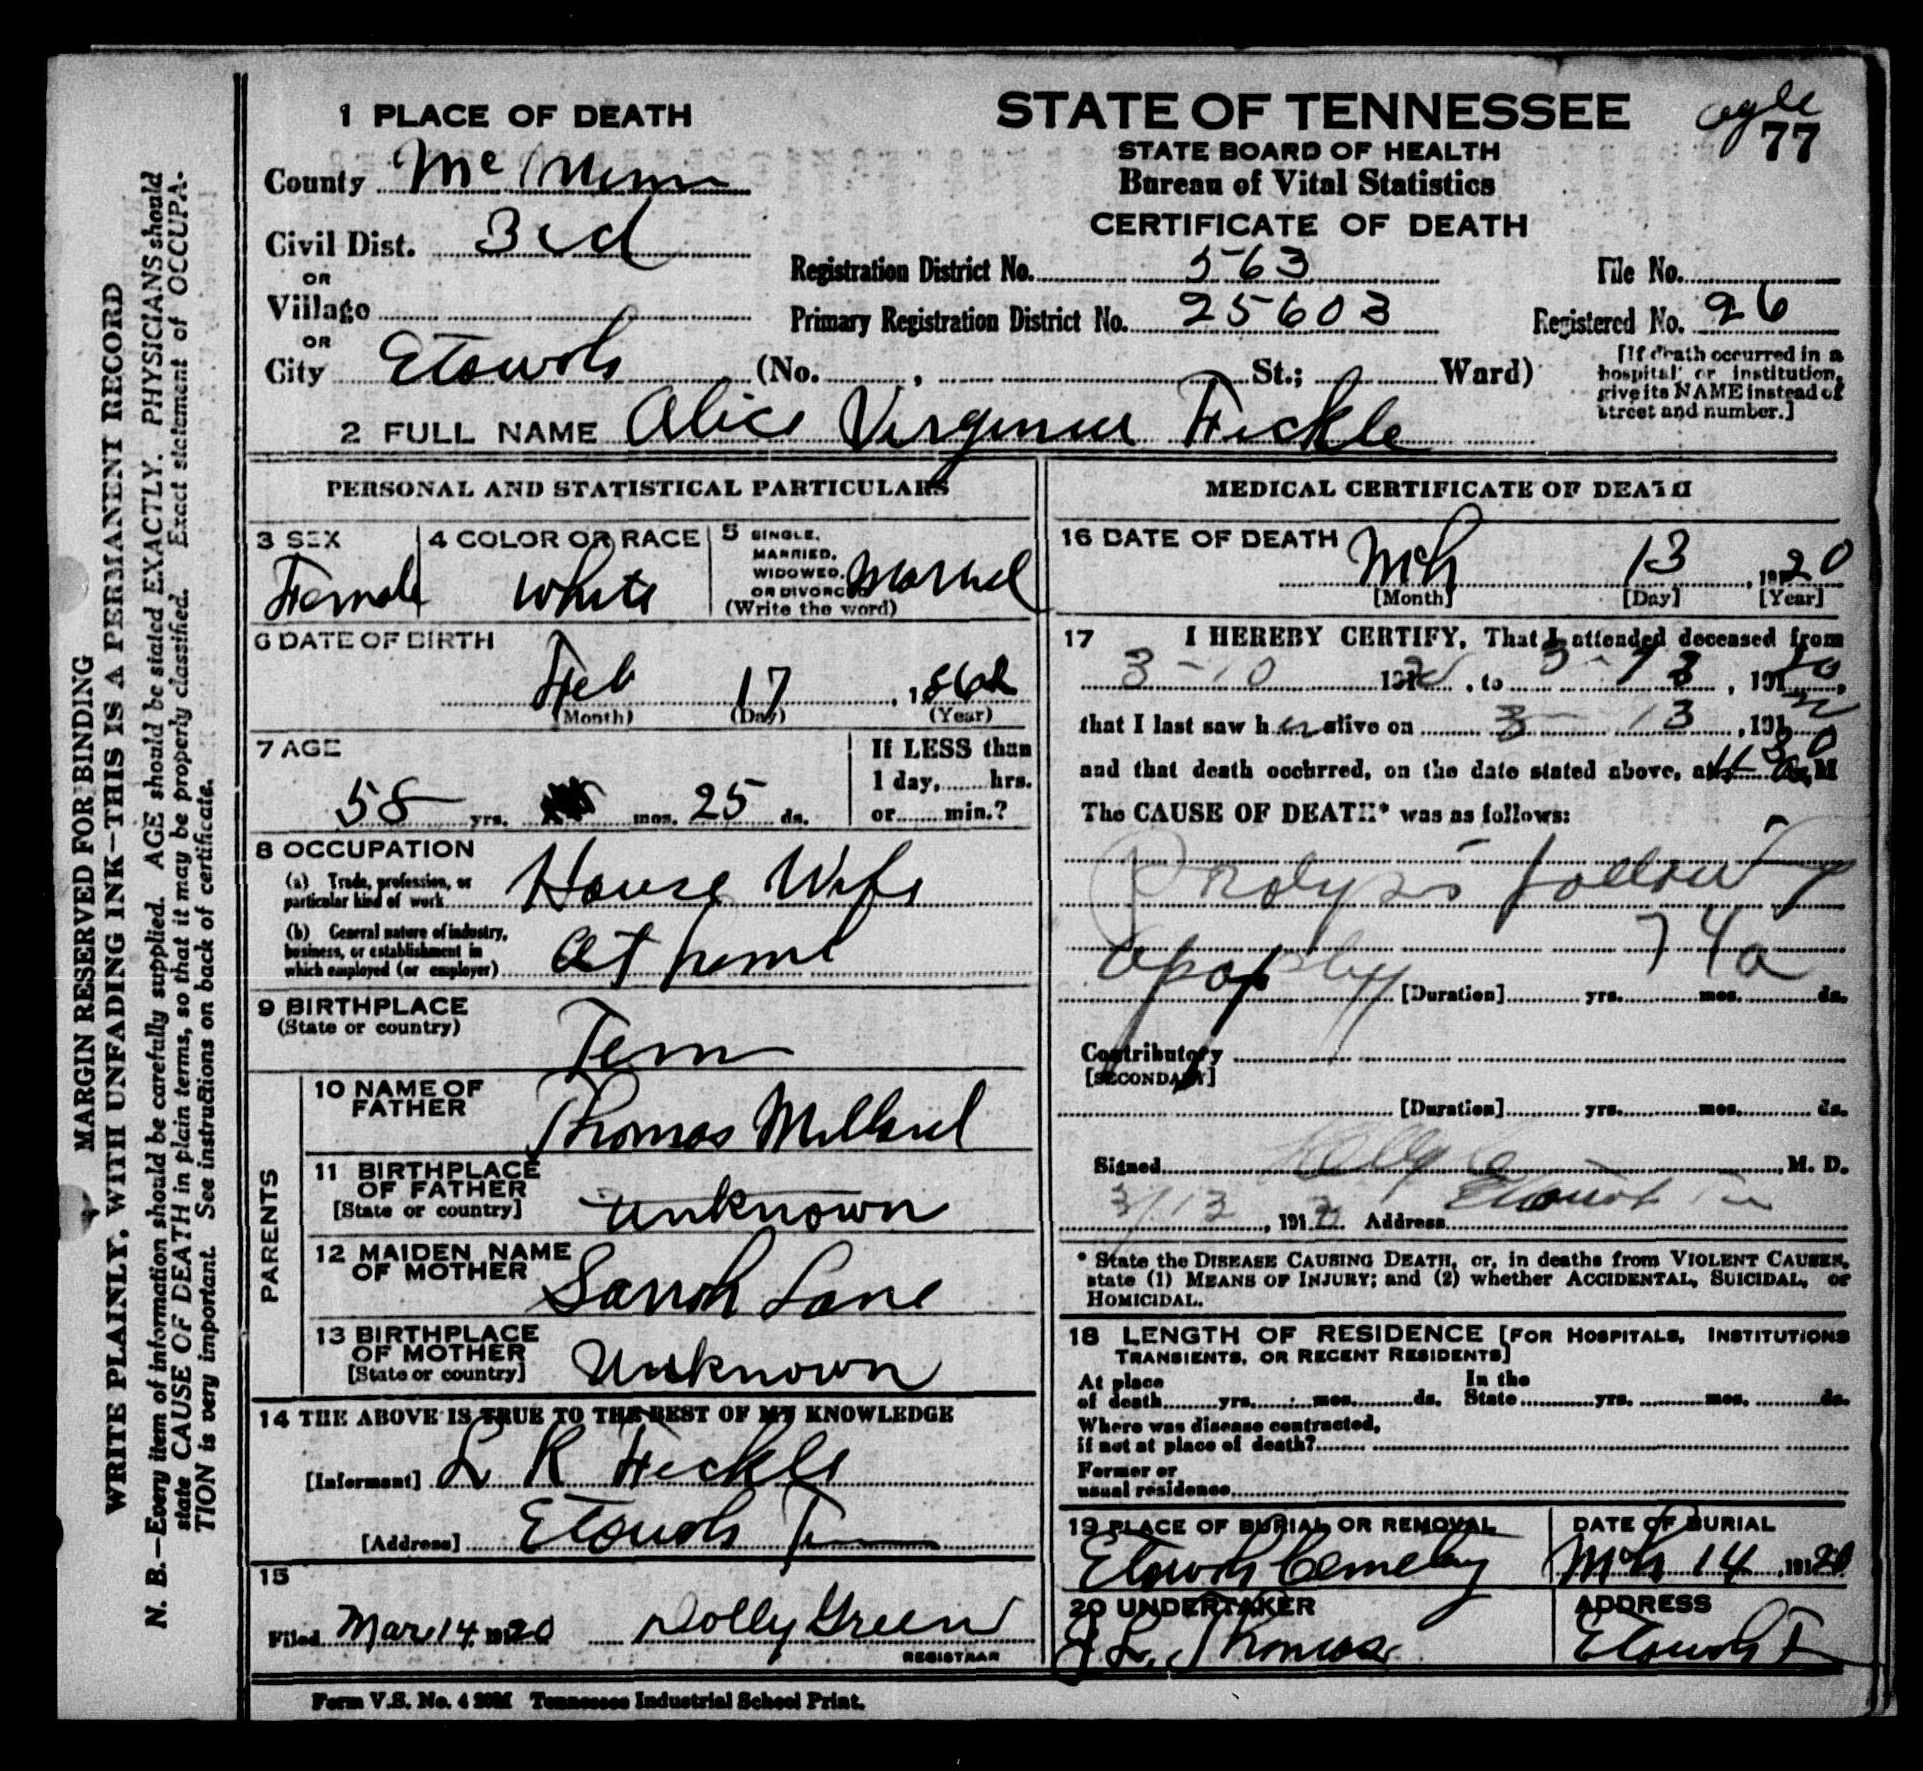 MARGIN RESERVED FOR BINDING
WRITE PLAINLY, WITH UNFADING INK—THIS IS A PERMANENT RECORD
N. B.—Every item of information should be carefully supplied. AGE should be stated EXACTLY. PHYSICIANS should
state CAUSE OF DEATH in plain terms, so that it may be properly classified. Exact statement of OCCUPA-
TION is very important. See instructions on back of certificate.
1 PLACE OF DEATH
County Mc Minn
Civil Dist. 3rd
OR
Village
OR
City Etowah (No. , St.; Ward)
STATE OF TENNESSEE
STATE BOARD OF HEALTH
Bureau of Vital Statistics
CERTIFICATE OF DEATH
77
Registration District No. 563
File No.
Primary Registration District No. 25603
Registered No. 26
[If death occurred in a
hospital or institution,
give its NAME instead of
street and number.]
2 FULL NAME Alice Virginia Fickle
PERSONAL AND STATISTICAL PARTICULARS
3 SEX Female
4 COLOR OR RACE White
5 SINGLE, MARRIED, WIDOWED, OR DIVORCED (Write the word) Married
6 DATE OF BIRTH
Feb 17, 1862
(Month) (Day) (Year)
7 AGE
58 yrs. mos. 25 ds.
If LESS than
1 day, hrs.
or min.?
8 OCCUPATION
(a) Trade, profession, or
particular kind of work House Wife
(b) General nature of industry,
business, or establishment in
which employed (or employer) At home
9 BIRTHPLACE
(State or country) Tenn
PARENTS
10 NAME OF
FATHER Thomas Millard
11 BIRTHPLACE
OF FATHER
[State or country] Unknown
12 MAIDEN NAME
OF MOTHER Sarah Lane
13 BIRTHPLACE
OF MOTHER
[State or country] Unknown
14 THE ABOVE IS TRUE TO THE BEST OF MY KNOWLEDGE
[Informant] L R Fickle
[Address] Etowah Tenn
15
Filed Mar 14 1920 Dolly Green
REGISTRAR
MEDICAL CERTIFICATE OF DEATH
16 DATE OF DEATH Mch 13, 1920
[Month] [Day] [Year]
17 I HEREBY CERTIFY, That I attended deceased from
3-10 1920, to 3-13, 1920,
that I last saw her alive on 3-13, 1920
and that death occurred, on the date stated above, at M
The CAUSE OF DEATH* was as follows:
Paralysis following
Apoplexy 74a
[Duration] yrs. mos. ds.
Contributory
[SECONDARY]
[Duration] yrs. mos. ds.
Signed , M. D.
3/13, 1920 Address Etowah Tenn
* State the DISEASE CAUSING DEATH, or, in deaths from VIOLENT CAUSES,
state (1) MEANS OF INJURY; and (2) whether ACCIDENTAL, SUICIDAL, or
HOMICIDAL.
18 LENGTH OF RESIDENCE [FOR HOSPITALS, INSTITUTIONS
TRANSIENTS, OR RECENT RESIDENTS]
At place
of death yrs. mos. ds. In the
State yrs. mos. ds.
Where was disease contracted,
if not at place of death?
Former or
usual residence
19 PLACE OF BURIAL OR REMOVAL
Etowah Cemetery
DATE OF BURIAL
Mch 14, 1920
20 UNDERTAKER
J L Thomas
ADDRESS
Etowah T
Form V.S. No. 4 20M Tennessee Industrial School Print.